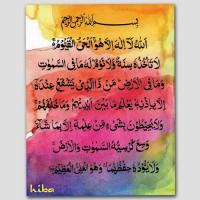 بسم الله الرحمن الرحيم
الله لا إله إلا هو الحي القيوم
لا تأخذه سنة ولا نوم له ما في السموت
وما في الأرض من ذا الذي يشفع عنده
إلا بإذنه يعلم ما بين أيديهم وما خلفهم
ولا يحيطون بشيء من علمه إلا بما شاء
وسع كرسيه السموت والأرض
ولا يؤده حفظهما وهو العلي العظيم
hiba